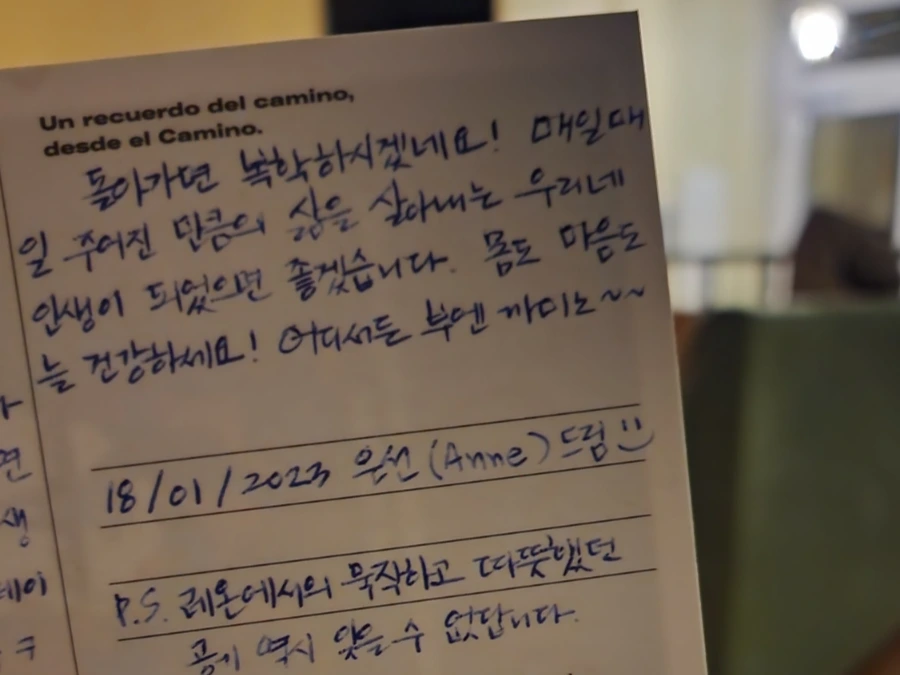 Un recuerdo del camino,
desde el Camino.
돌아가면 복학하시겠네요! 매일매
일 주어진 만큼의 삶을 살아내는 우리네
인생이 되었으면 좋겠습니다. 몸도 마음도
늘 건강하세요! 어디서든 부엔 까미노~~
18/01/2023 은선(Anne)드림
P.S. 레온에서의 묵직하고 따뜻했던
공기 역시 잊을 수 없답니다.
면
생
데이